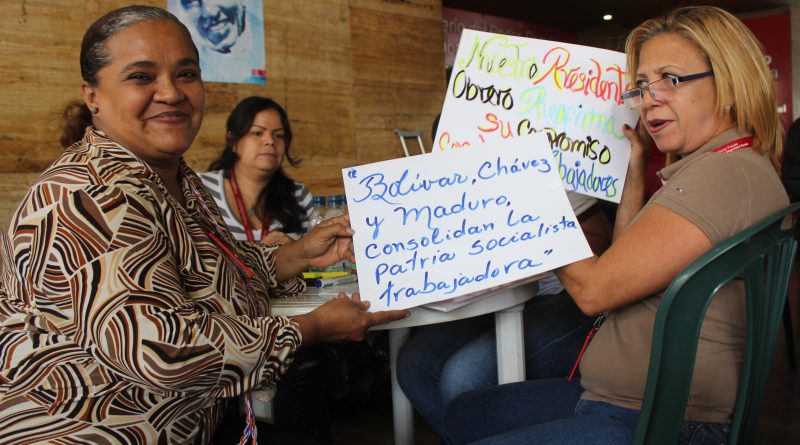 Nuestro Presidente
Obrero Reafirma
Con su Compromiso
Trabajadores
"Bolívar, Chávez
y Maduro,
consolidan la
patria socialista
trabajadora"